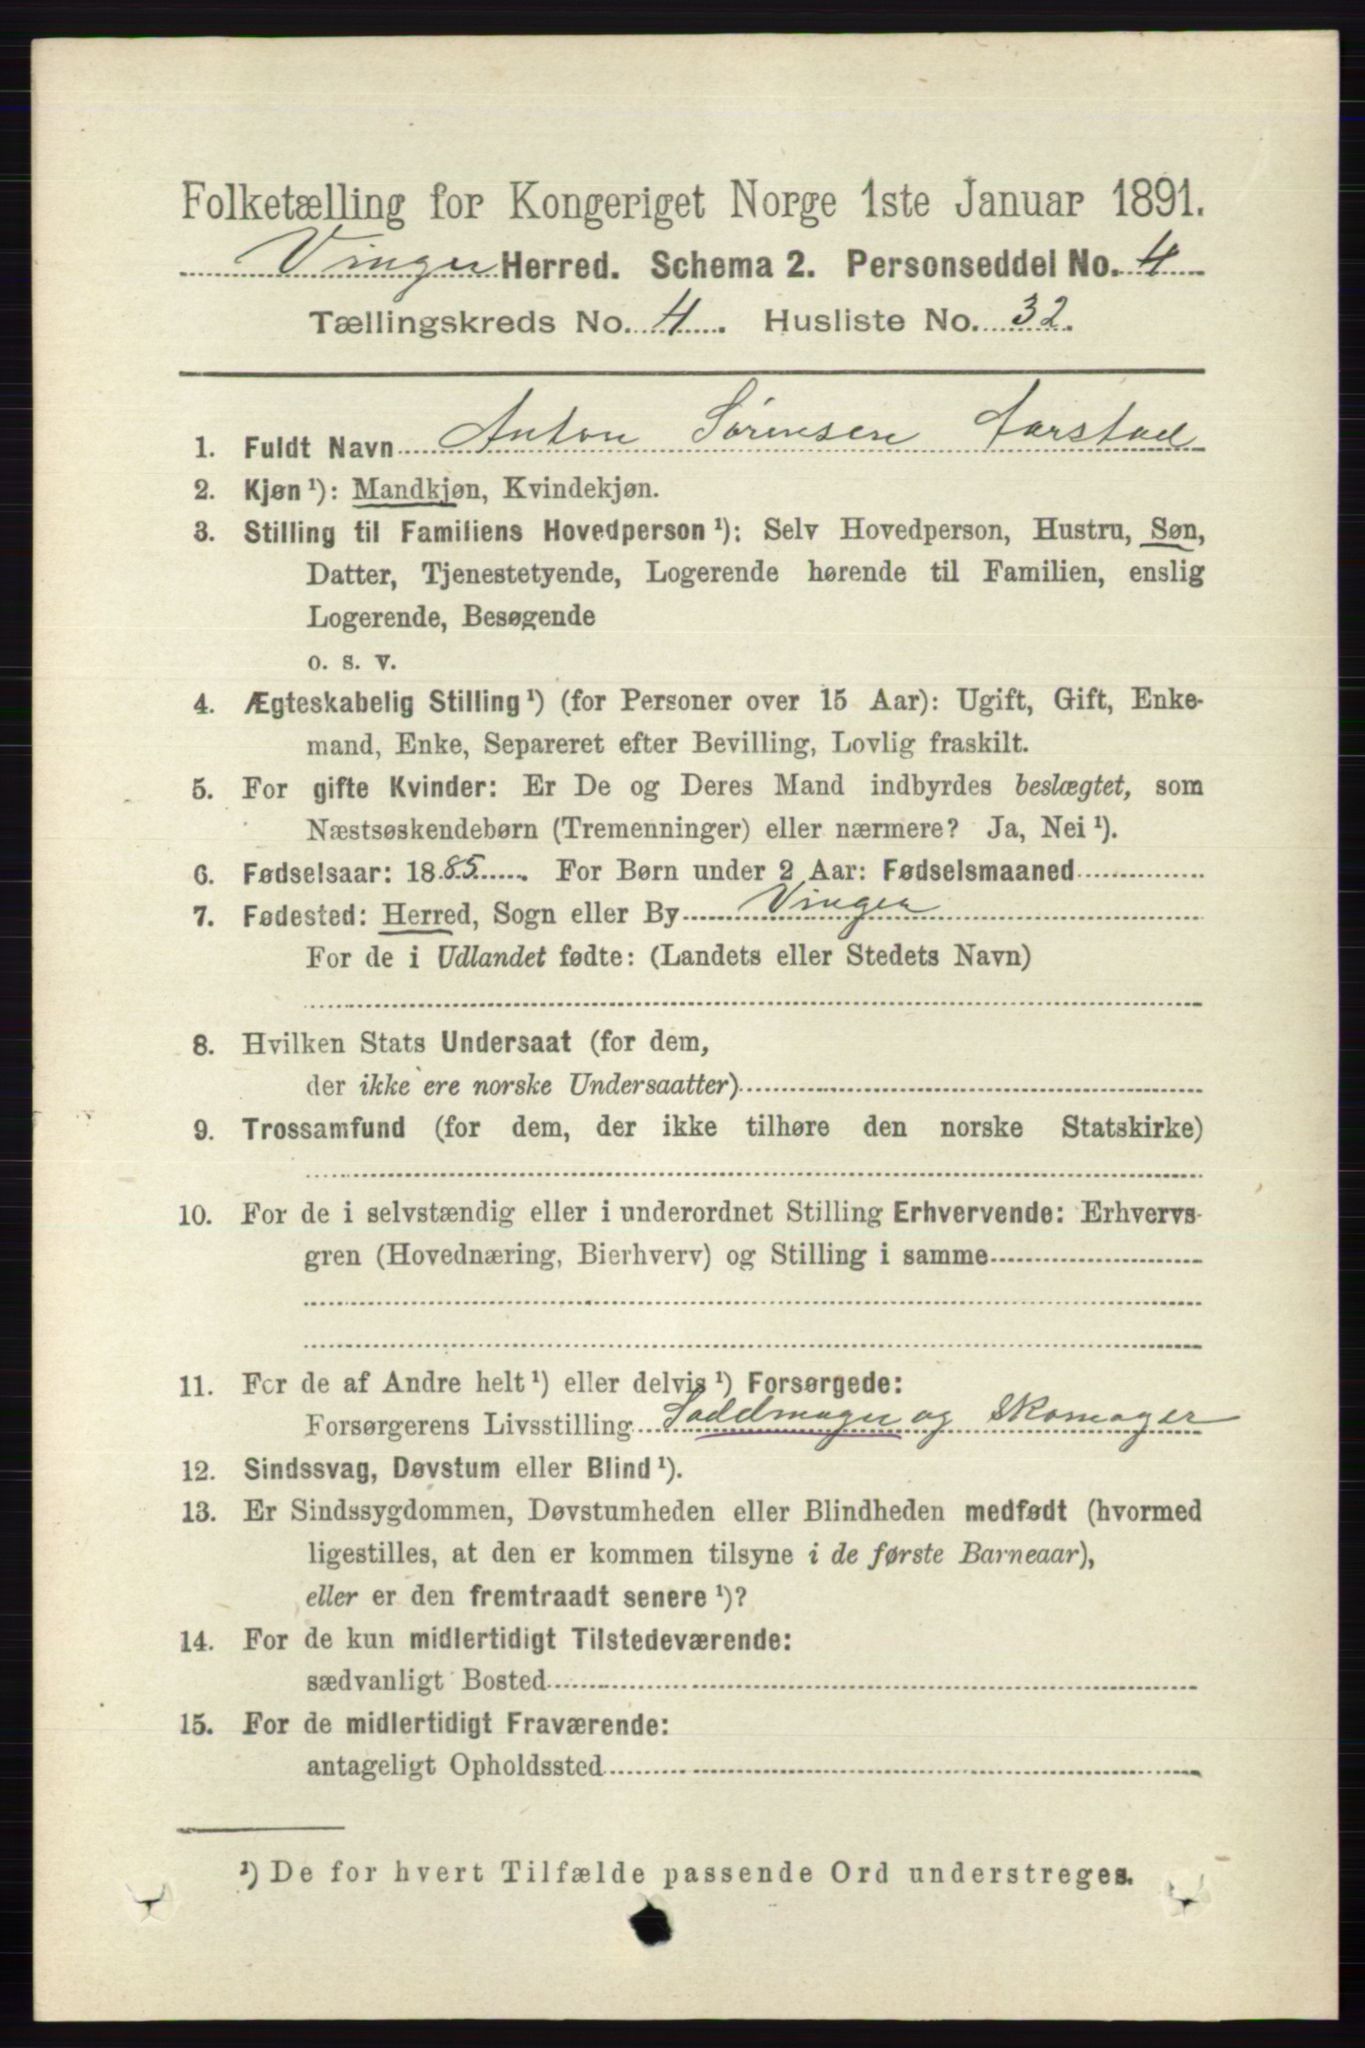 Folketælling for Kongeriget Norge 1ste Januar 1891.
Vinger Herred. Schema 2. Personseddel No. 4
Tællingskreds No. 4. Husliste No. 32.
1. Fuldt Navn Anton Sørensen Aarstad
2. Kjøn ¹): Mandkjøn, Kvindekjøn.
3. Stilling til Familiens Hovedperson ¹): Selv Hovedperson, Hustru, Søn,
Datter, Tjenestetyende, Logerende hørende til Familien, enslig
Logerende, Besøgende
o. s. v.
4. Ægteskabelig Stilling ¹) (for Personer over 15 Aar): Ugift, Gift, Enke-
mand, Enke, Separeret efter Bevilling, Lovlig fraskilt.
5. For gifte Kvinder: Er De og Deres Mand indbyrdes beslægtet, som
Næstsøskendebørn (Tremenninger) eller nærmere? Ja, Nei ¹).
6. Fødselsaar: 1885. For Børn under 2 Aar: Fødselsmaaned
7. Fødested: Herred, Sogn eller By Vinger
For de i Udlandet fødte: (Landets eller Stedets Navn)
8. Hvilken Stats Undersaat (for dem,
der ikke ere norske Undersaatter)
9. Trossamfund (for dem, der ikke tilhøre den norske Statskirke)
10. For de i selvstændig eller i underordnet Stilling Erhvervende: Erhvervs-
gren (Hovednæring, Bierhverv) og Stilling i samme
11. For de af Andre helt ¹) eller delvis ¹) Forsørgede:
Forsørgerens Livsstilling Saddmager og Skomager
12. Sindssvag, Døvstum eller Blind ¹).
13. Er Sindssygdommen, Døvstumheden eller Blindheden medfødt (hvormed
ligestilles, at den er kommen tilsyne i de første Barneaar),
eller er den fremtraadt senere ¹)?
14. For de kun midlertidigt Tilstedeværende:
sædvanligt Bosted
15. For de midlertidigt Fraværende:
antageligt Opholdssted
¹) De for hvert Tilfælde passende Ord understreges.